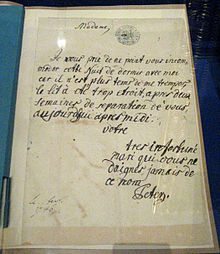 Madame
Je vous prie de ne point vous incom
cette Nuit de dormir avec moi
car il n'est plus tems de me trompes
le lit a été trop etroit, apres deux
semaines de separation de vous
aujourd'hui apres midi
votre
tres infortuné
mari qui vous ne
daignez jamais de
ce nom
Peter